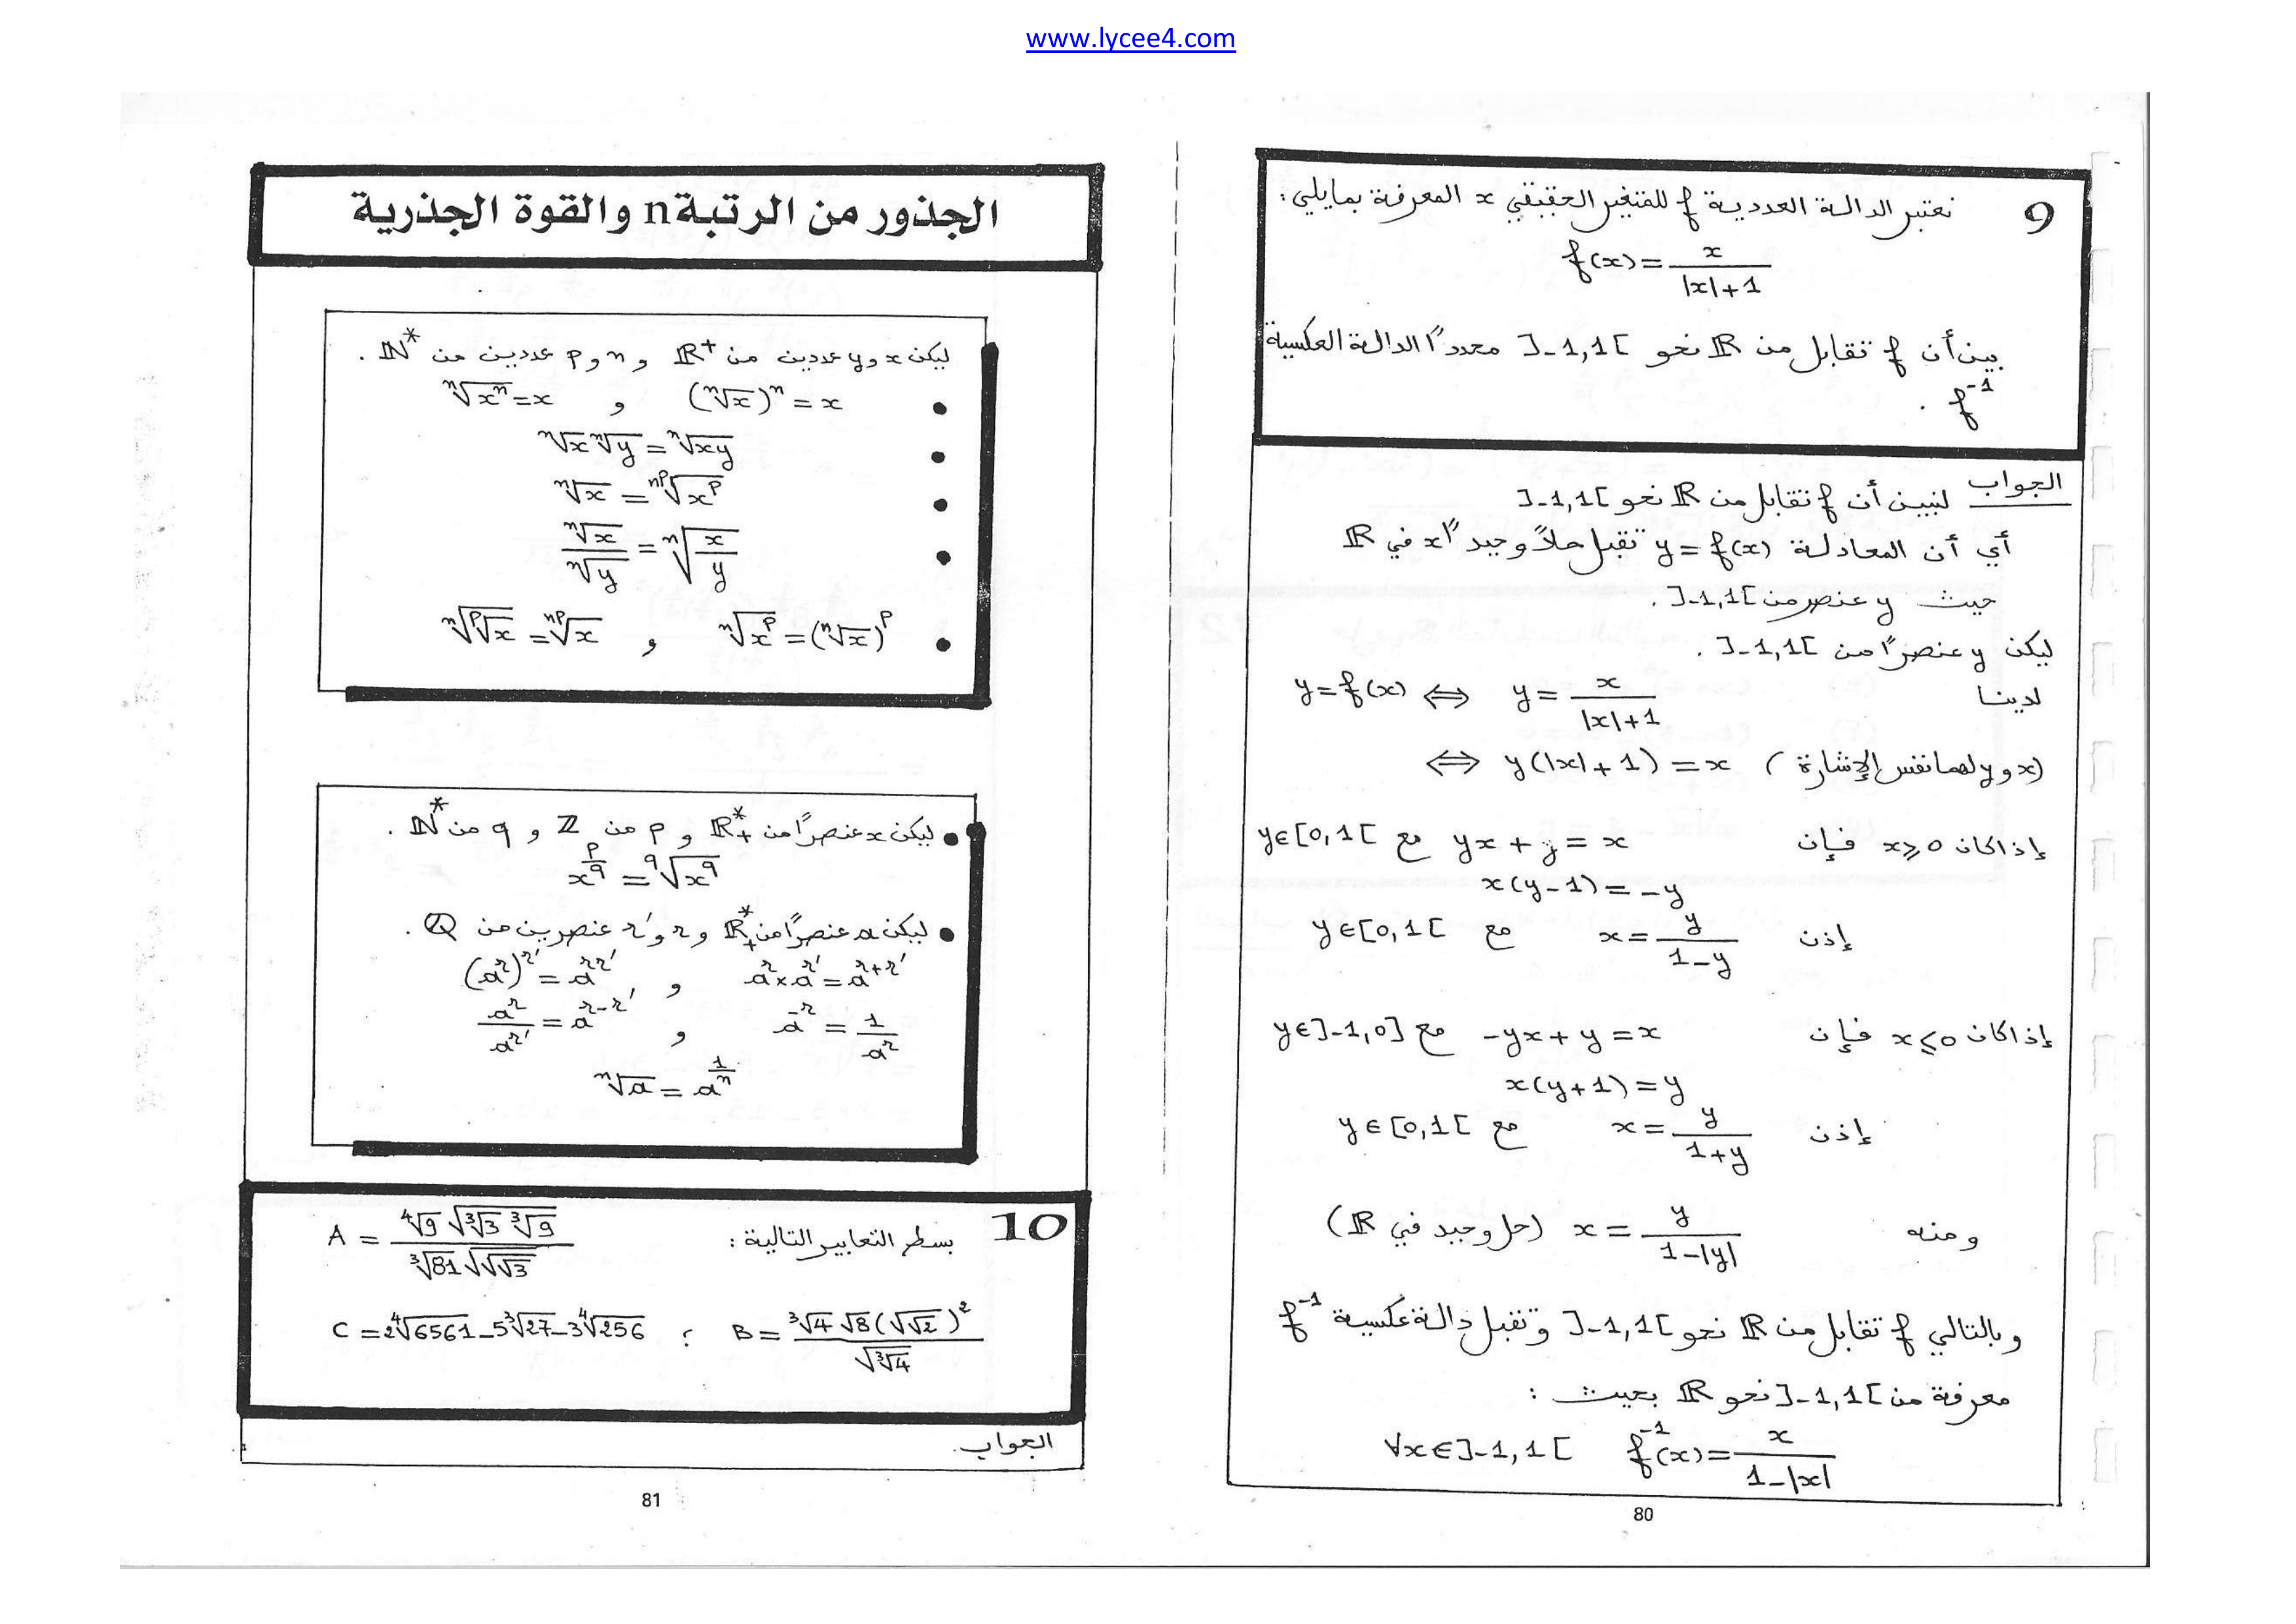 www.lycee4.com
9 نعتبر الدالة العددية f للمتغير الحقيقي x المعرفة بمايلي :
f(x) = x / (|x|+1)
بين أن f تقابل من ℝ نحو ]-1,1[ محددًا الدالة العكسية
f⁻¹ .
الجواب لنبين أن f تقابل من ℝ نحو ]-1,1[
أي أن المعادلة y = f(x) تقبل حلاً وحيدًا x في ℝ
حيث y عنصر من ]-1,1[ .
ليكن y عنصرًا من ]-1,1[ .
لدينا y = f(x) ⇔ y = x / (|x|+1)
⇔ y(|x|+1) = x (x و y لهما نفس الإشارة)
إذا كان x ⩾ 0 فإن yx + y = x مع y∈[0,1[
x(y-1) = -y
إذن x = y / (1-y) مع y∈[0,1[
إذا كان x ⩽ 0 فإن -yx + y = x مع y∈]-1,0]
x(y+1) = y
إذن x = y / (1+y) مع y∈[0,1[
ومنه x = y / (1-|y|) (حل وحيد في ℝ)
وبالتالي f تقابل من ℝ نحو ]-1,1[ وتقبل دالة عكسية f⁻¹
معرفة من ]-1,1[ نحو ℝ بحيث :
∀x∈]-1,1[ f⁻¹(x) = x / (1-|x|)
80
الجذور من الرتبة n والقوة الجذرية
ليكن x و y عددين من ℝ⁺ و n و p عددين من ℕ* .
• (ⁿ√x)ⁿ = x و ⁿ√(xⁿ) = x
• ⁿ√x ⁿ√y = ⁿ√(xy)
• ⁿ√x = ⁿᵖ√(xᵖ)
• ⁿ√x / ⁿ√y = ⁿ√(x/y)
• ⁿ√(xᵖ) = (ⁿ√x)ᵖ و ⁿ√(ᵖ√x) = ⁿᵖ√x
• ليكن x عنصرًا من ℝ*₊ و p من ℤ و q من ℕ* .
x^(p/q) = q√(x^q)
• ليكن a عنصرًا من ℝ*₊ و r و r' عنصرين من ℚ .
a^r × a^r' = a^(r+r') و (a^r)^r' = a^(rr')
a^(-r) = 1 / a^r و a^r / a^r' = a^(r-r')
ⁿ√a = a^(1/n)
10 بسط التعابير التالية : A = ⁴√9 √(³√3 ³√9) / (³√81 √(√(√3)))
B = ³√4 √8 (√(√2))² / √(³√4) ; C = 2⁴√6561 - 5³√27 - 3⁴√256
الجواب.
81